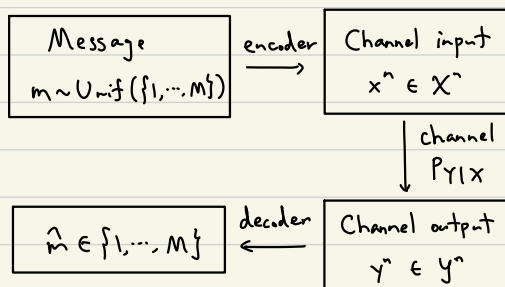 Message
m ~ Unif({1,...,M})
encoder
Channel input
xⁿ ∈ Xⁿ
channel
P_{Y|X}
Channel output
yⁿ ∈ Yⁿ
decoder
m̂ ∈ {1,..., M}